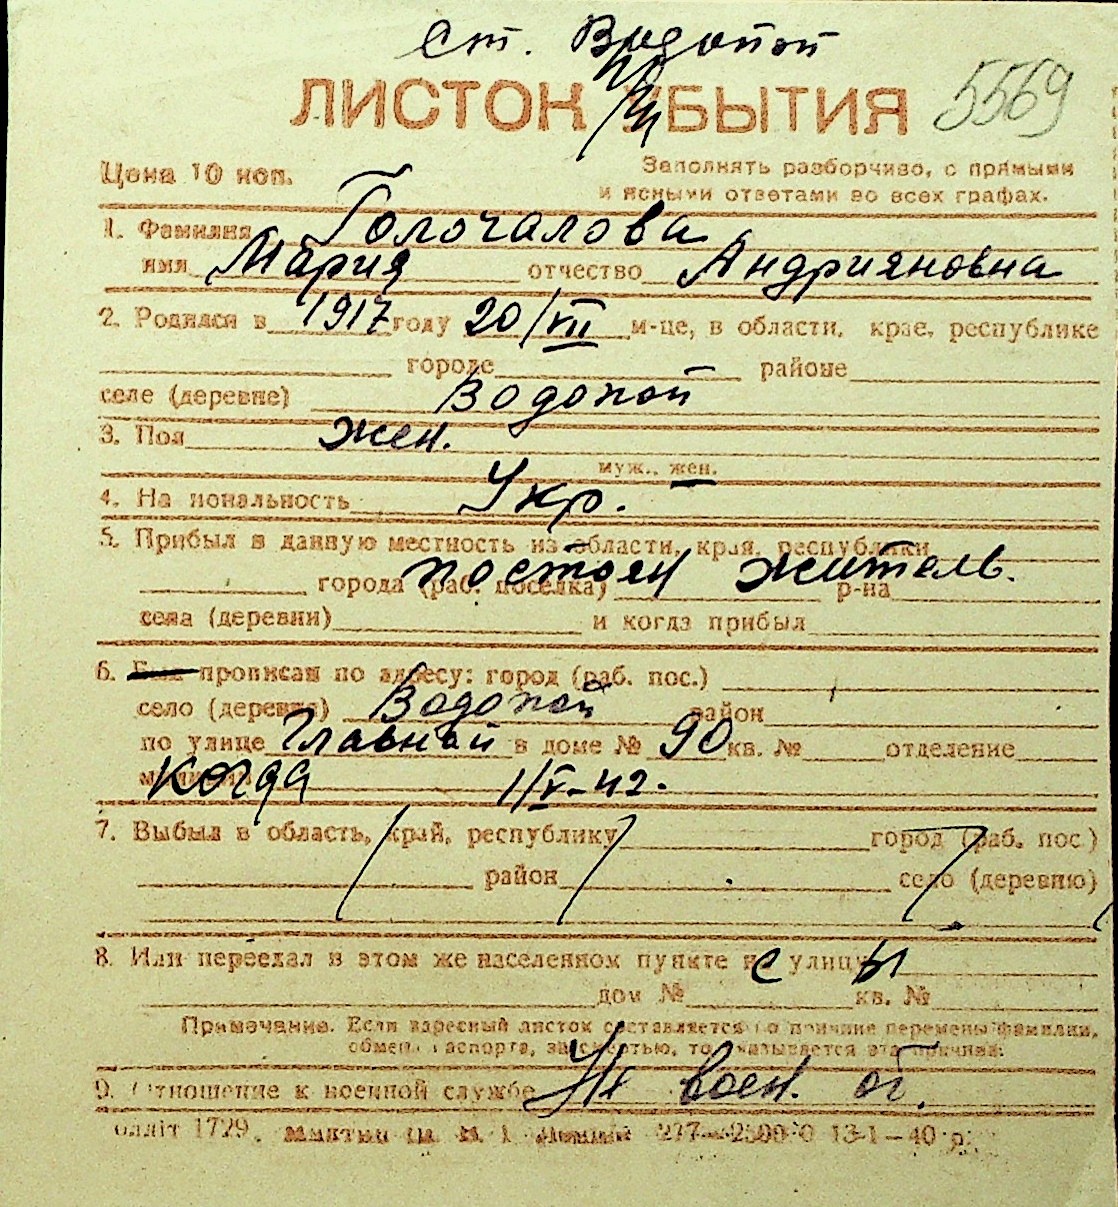 ст. Водопой
ЛИСТОК УБЫТИЯ 5569
Цена 10 коп.
Заполнять разборчиво, с прямыми
и ясными ответами во всех графах.
1. Фамилия Голочалова
имя Мария отчество Андрияновна
2. Родился в 1917 году 20/VII м-це, в области, крае, республике
городе районе
селе (деревне) Водопой
3. Пол жен.
муж., жен.
4. На иональность Укр.
5. Прибыл в данную местность из области, края, республики
постоян житель.
города (раб. поселка) р-на
села (деревни) и когда прибыл
6. Был прописан по адресу: город (раб. пос.)
село (деревня) Водопой район
по улице Главной в доме № 90 кв. № отделение
когда 1/V-42.
7. Выбыл в область, край, республику город (раб. пос.)
район село (деревню)
8. Или переехал в этом же населенном пункте на улицу
с ы
дом № кв. №
Примечание. Если адресный листок составляется по причине перемены фамилии,
обмена паспорта, за смертью, то указывается эта причина.
9. Отношение к военной службе Не воен. об.
1729 277 13-1-40 р.